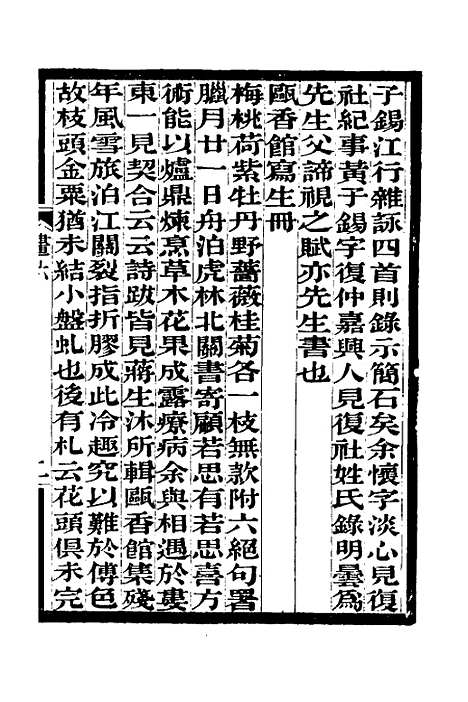 子錫江行雜詠四首則錄示簡石矣余懷字淡心見復
社紀事黃子錫字復仲嘉興人見復社姓氏錄明曇為
先生父諦視之賦亦先生書也
甌香館寫生冊
梅桃荷紫牡丹野薔薇桂菊各一枝無款附六絕句署
臘月廿一日舟泊虎林北關書寄顧若思有若思喜方
術能以爐鼎煉烹草木花果成露療病余與相遇於婁
東一見契合云云詩跋皆見蔣生沐所輯甌香館集殘
年風雪旅泊江關裂指折膠成此冷趣究以難於傅色
故枝頭金粟猶未結小盤虬也後有札云花頭俱未完